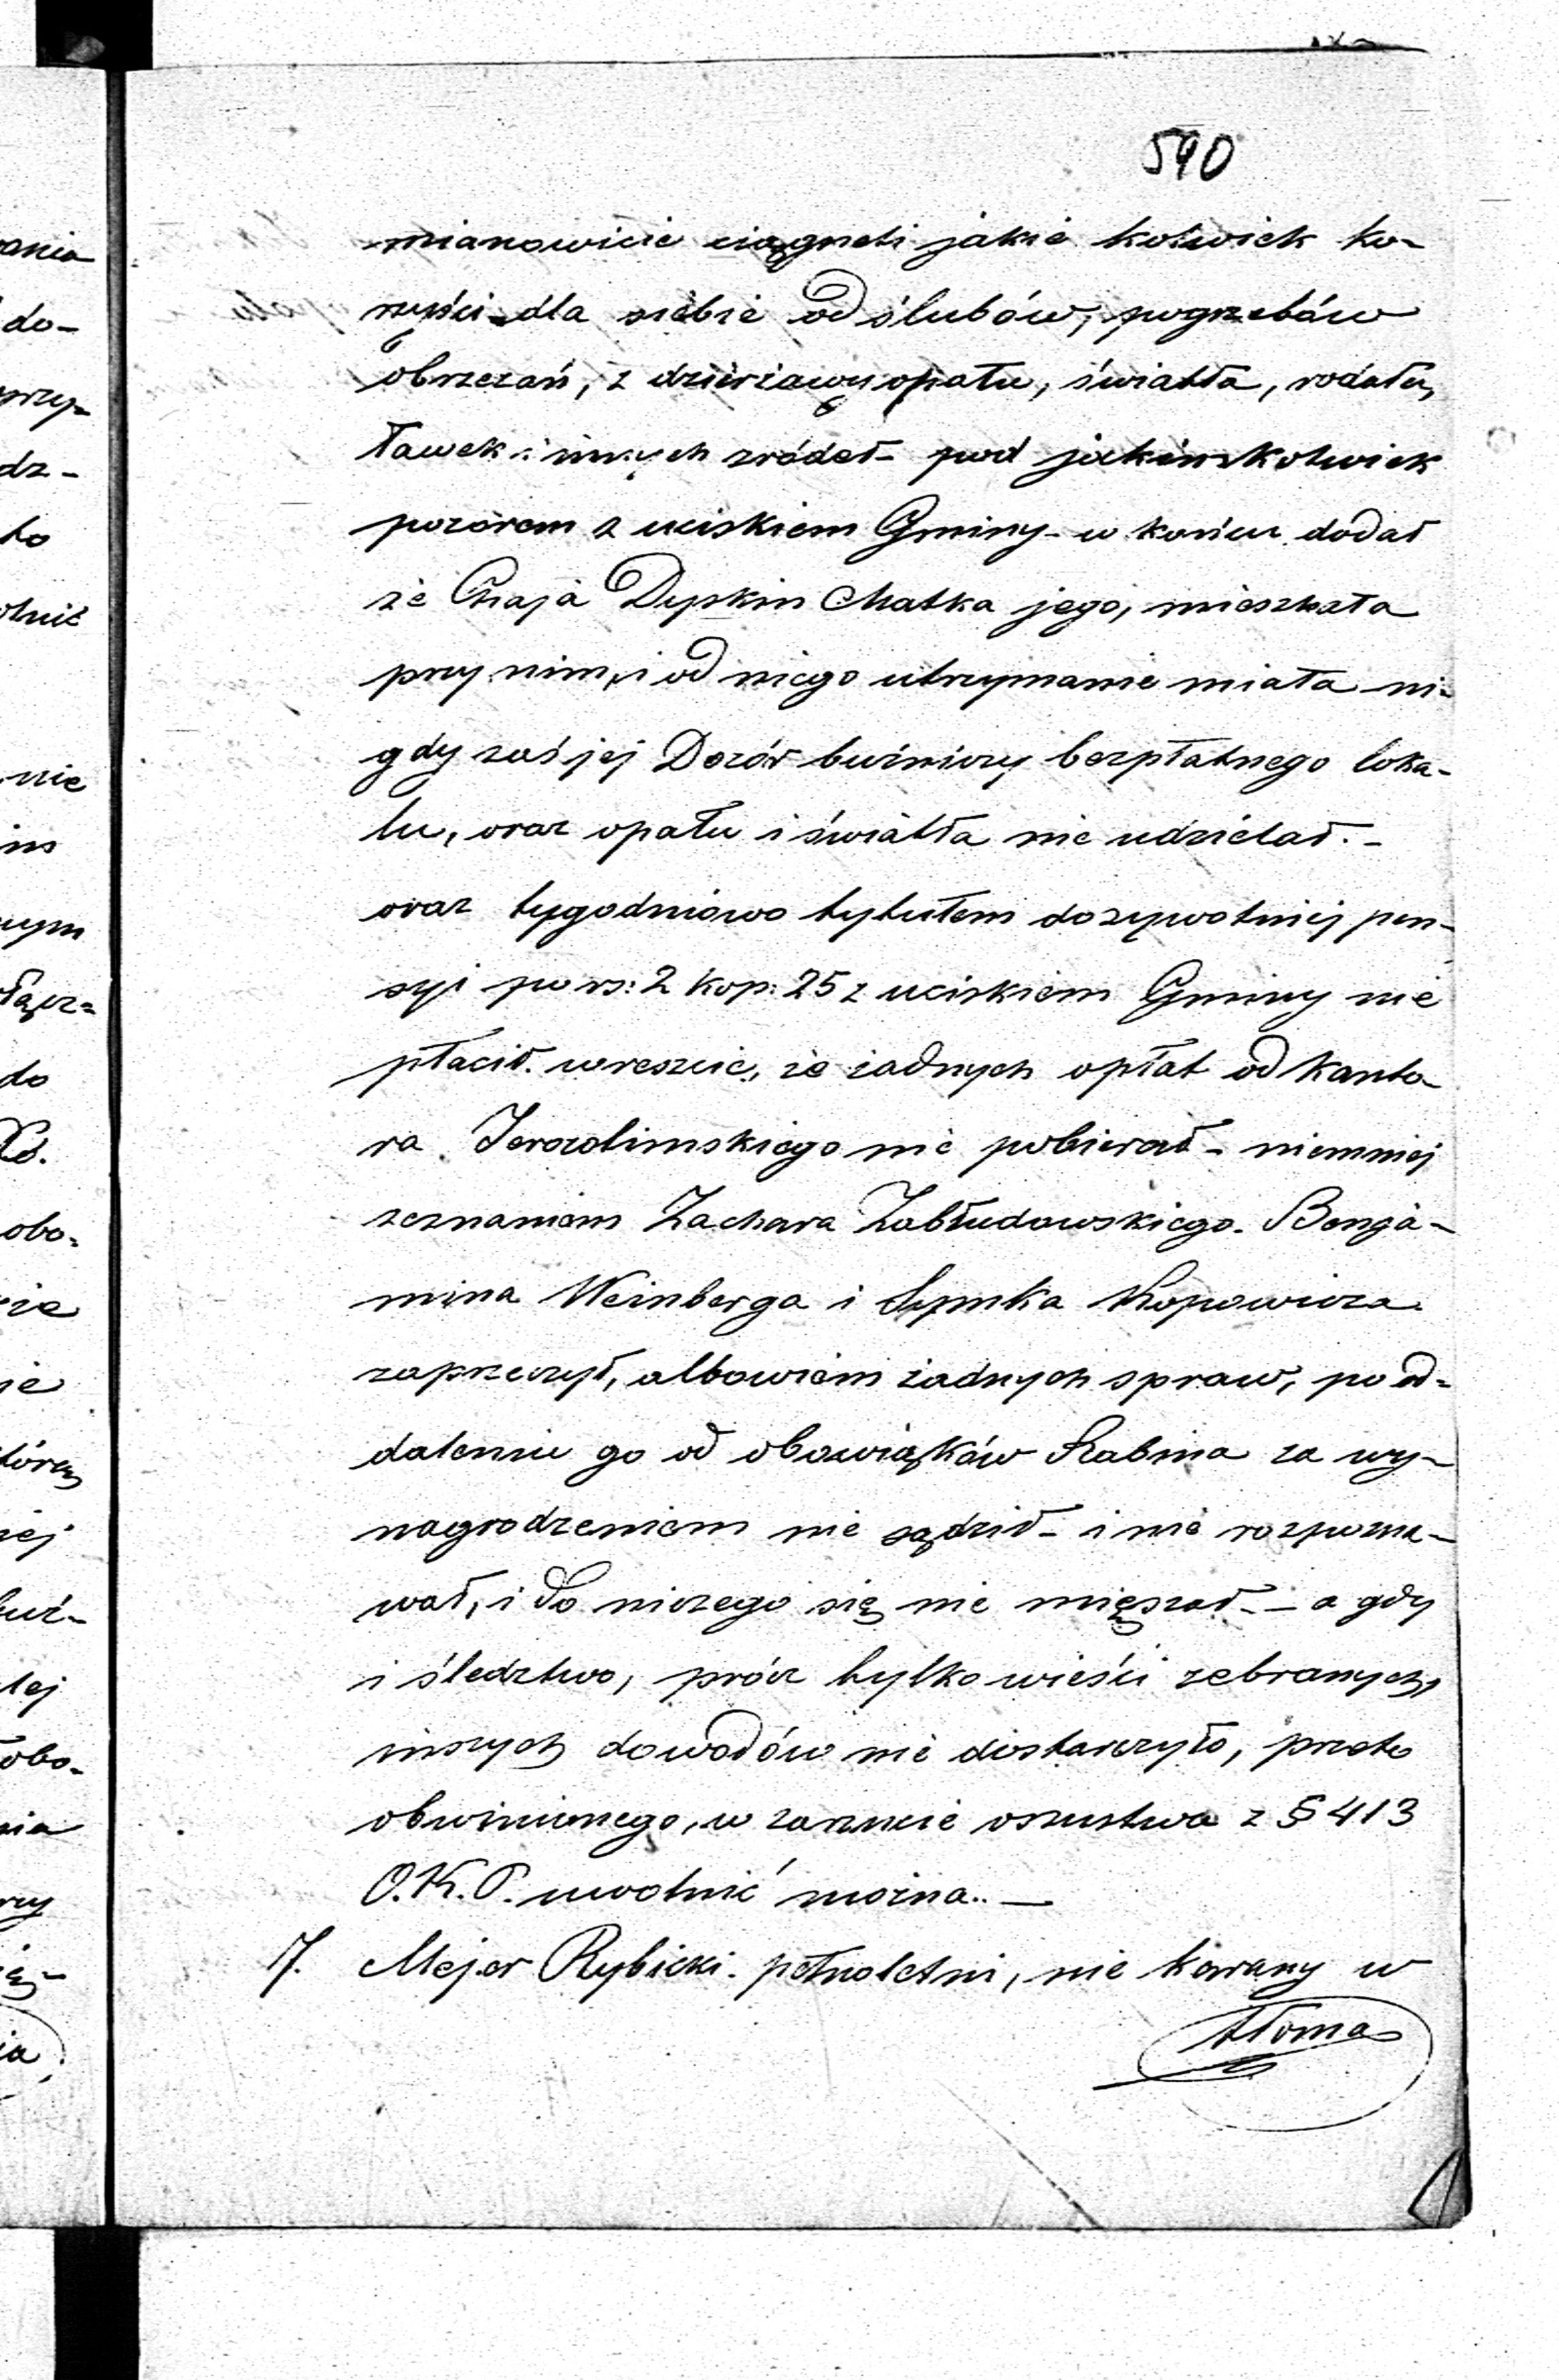 540
mianowicie ciągneli jakie kolwiek ko-
rzyści dla siebie od ślubów, pogrzebów
obrzezań, z dzierżawy opału, światła, rodału,
ławek i innych zródeł - pod jakimkolwiek
pozorem z uciskiem Gminy - w końcu dodał
że Chaja Dypkin Matka jego, mieszkała
przy nim, i od niego utrzymanie miała ni-
gdy zaś jej Dozór bużniczy bezpłatnego loka-
lu, oraz opału i światła nie udzielał. -
oraz tygodniowo tytułem dozywotniej pen-
syi po rs: 2 kop: 25 z uciskiem Gminy nie
płacił. wreszcie, że żadnych opłat od kanto
ra Jerozolimskiego nie pobierał - niemniej
zeznaniom Zachara Zabłudowskiego. Benja-
mina Weinberga i
zaprzeczył, albowiem żadnych spraw, po od-
daleniu go od obowiązków Rabina za wy-
nagrodzeniem nie sądził - i nie rozpozna-
wał, i do niczego się nie mięszał. - a gdy
i śledztwo, prócz tylko wieści zebranych,
inszych dowodów nie dostarczyło, przeto
obwinionego, w zarzucie oszustwa z § 413
O.K.P. uwolnić można.. —
7. Mejer Rybicki. pełnoletni, nie karany w